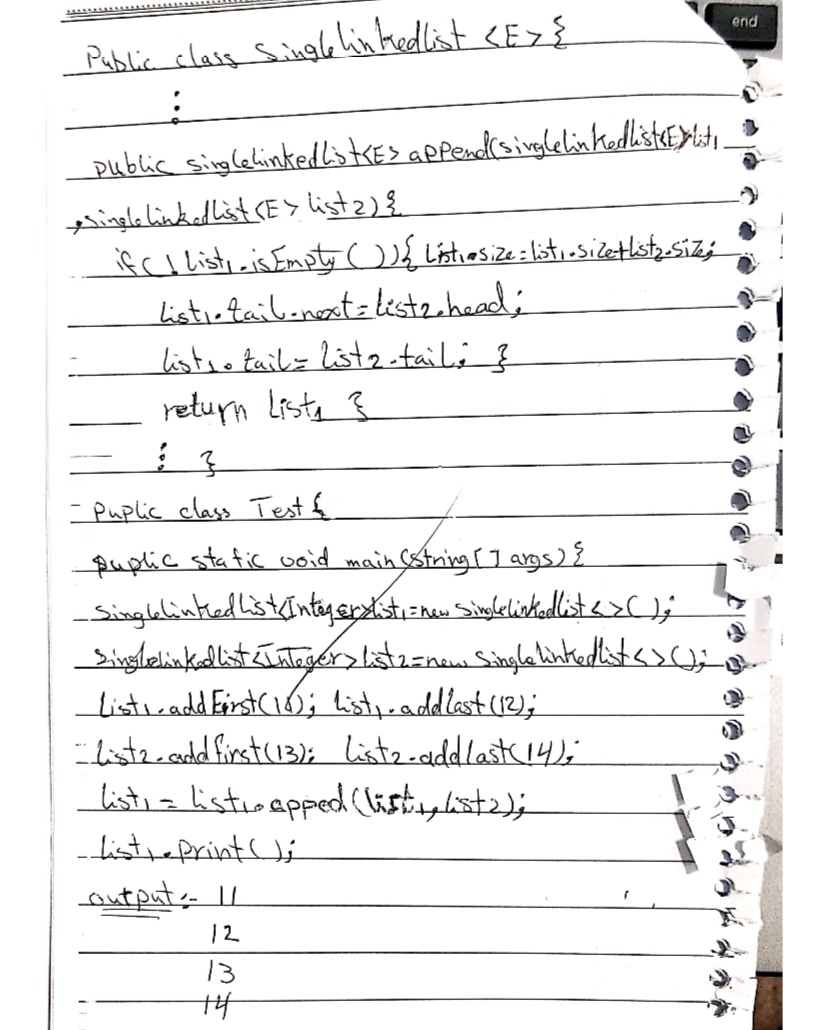 end
Public class Singlelinkedlist <E> {
⋮
public singlelinkedlist<E> append(singlelinkedlist<E> list1
,singlelinkedlist<E> list2) {
if ( ! list1.isEmpty ( ) ) { list1.size = list1.size+list2.size;
list1.tail.next = list2.head;
list1.tail = list2.tail; }
return list1 }
⋮ }
- puplic class Test {
puplic static void main (string [ ] args) {
singlelinkedlist<Integer>list1=new singlelinkedlist< >( );
singlelinkedlist<Integer>list2=new singlelinkedlist< >( );
list1.addFirst( ); list1.addlast(12);
list2.addfirst(13); list2.addlast(14);
list1 = list1.apped (list1, list2);
list1.print( );
output :- 11
12
13
14